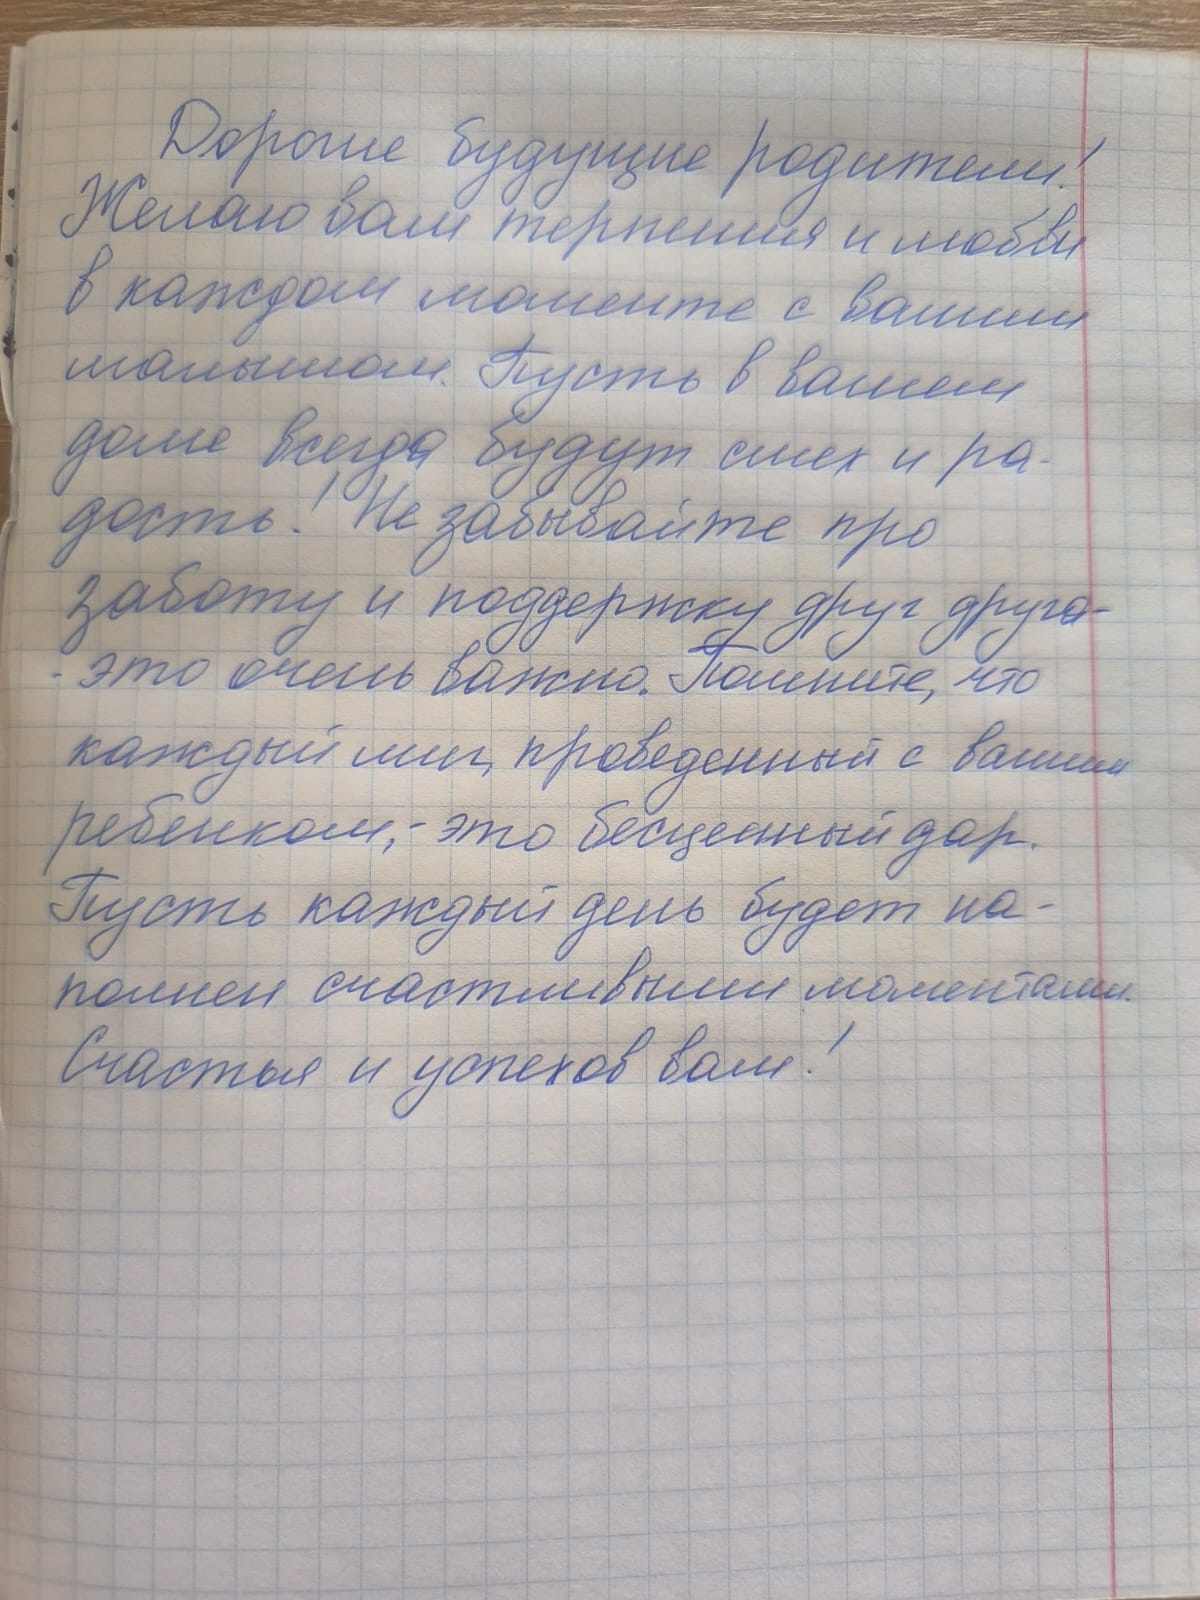 Дорогие будущие родители!
Желаю вам терпения и любви
в каждом моменте с вашим
малышом. Пусть в вашем
доме всегда будут смех и ра-
дость! Не забывайте про
заботу и поддержку друг друга-
- это очень важно. Помните, что
каждый миг, проведенный с вашим
ребенком, - это бесценный дар.
Пусть каждый день будет на-
полнен счастливыми моментами.
Счастья и успехов вам!